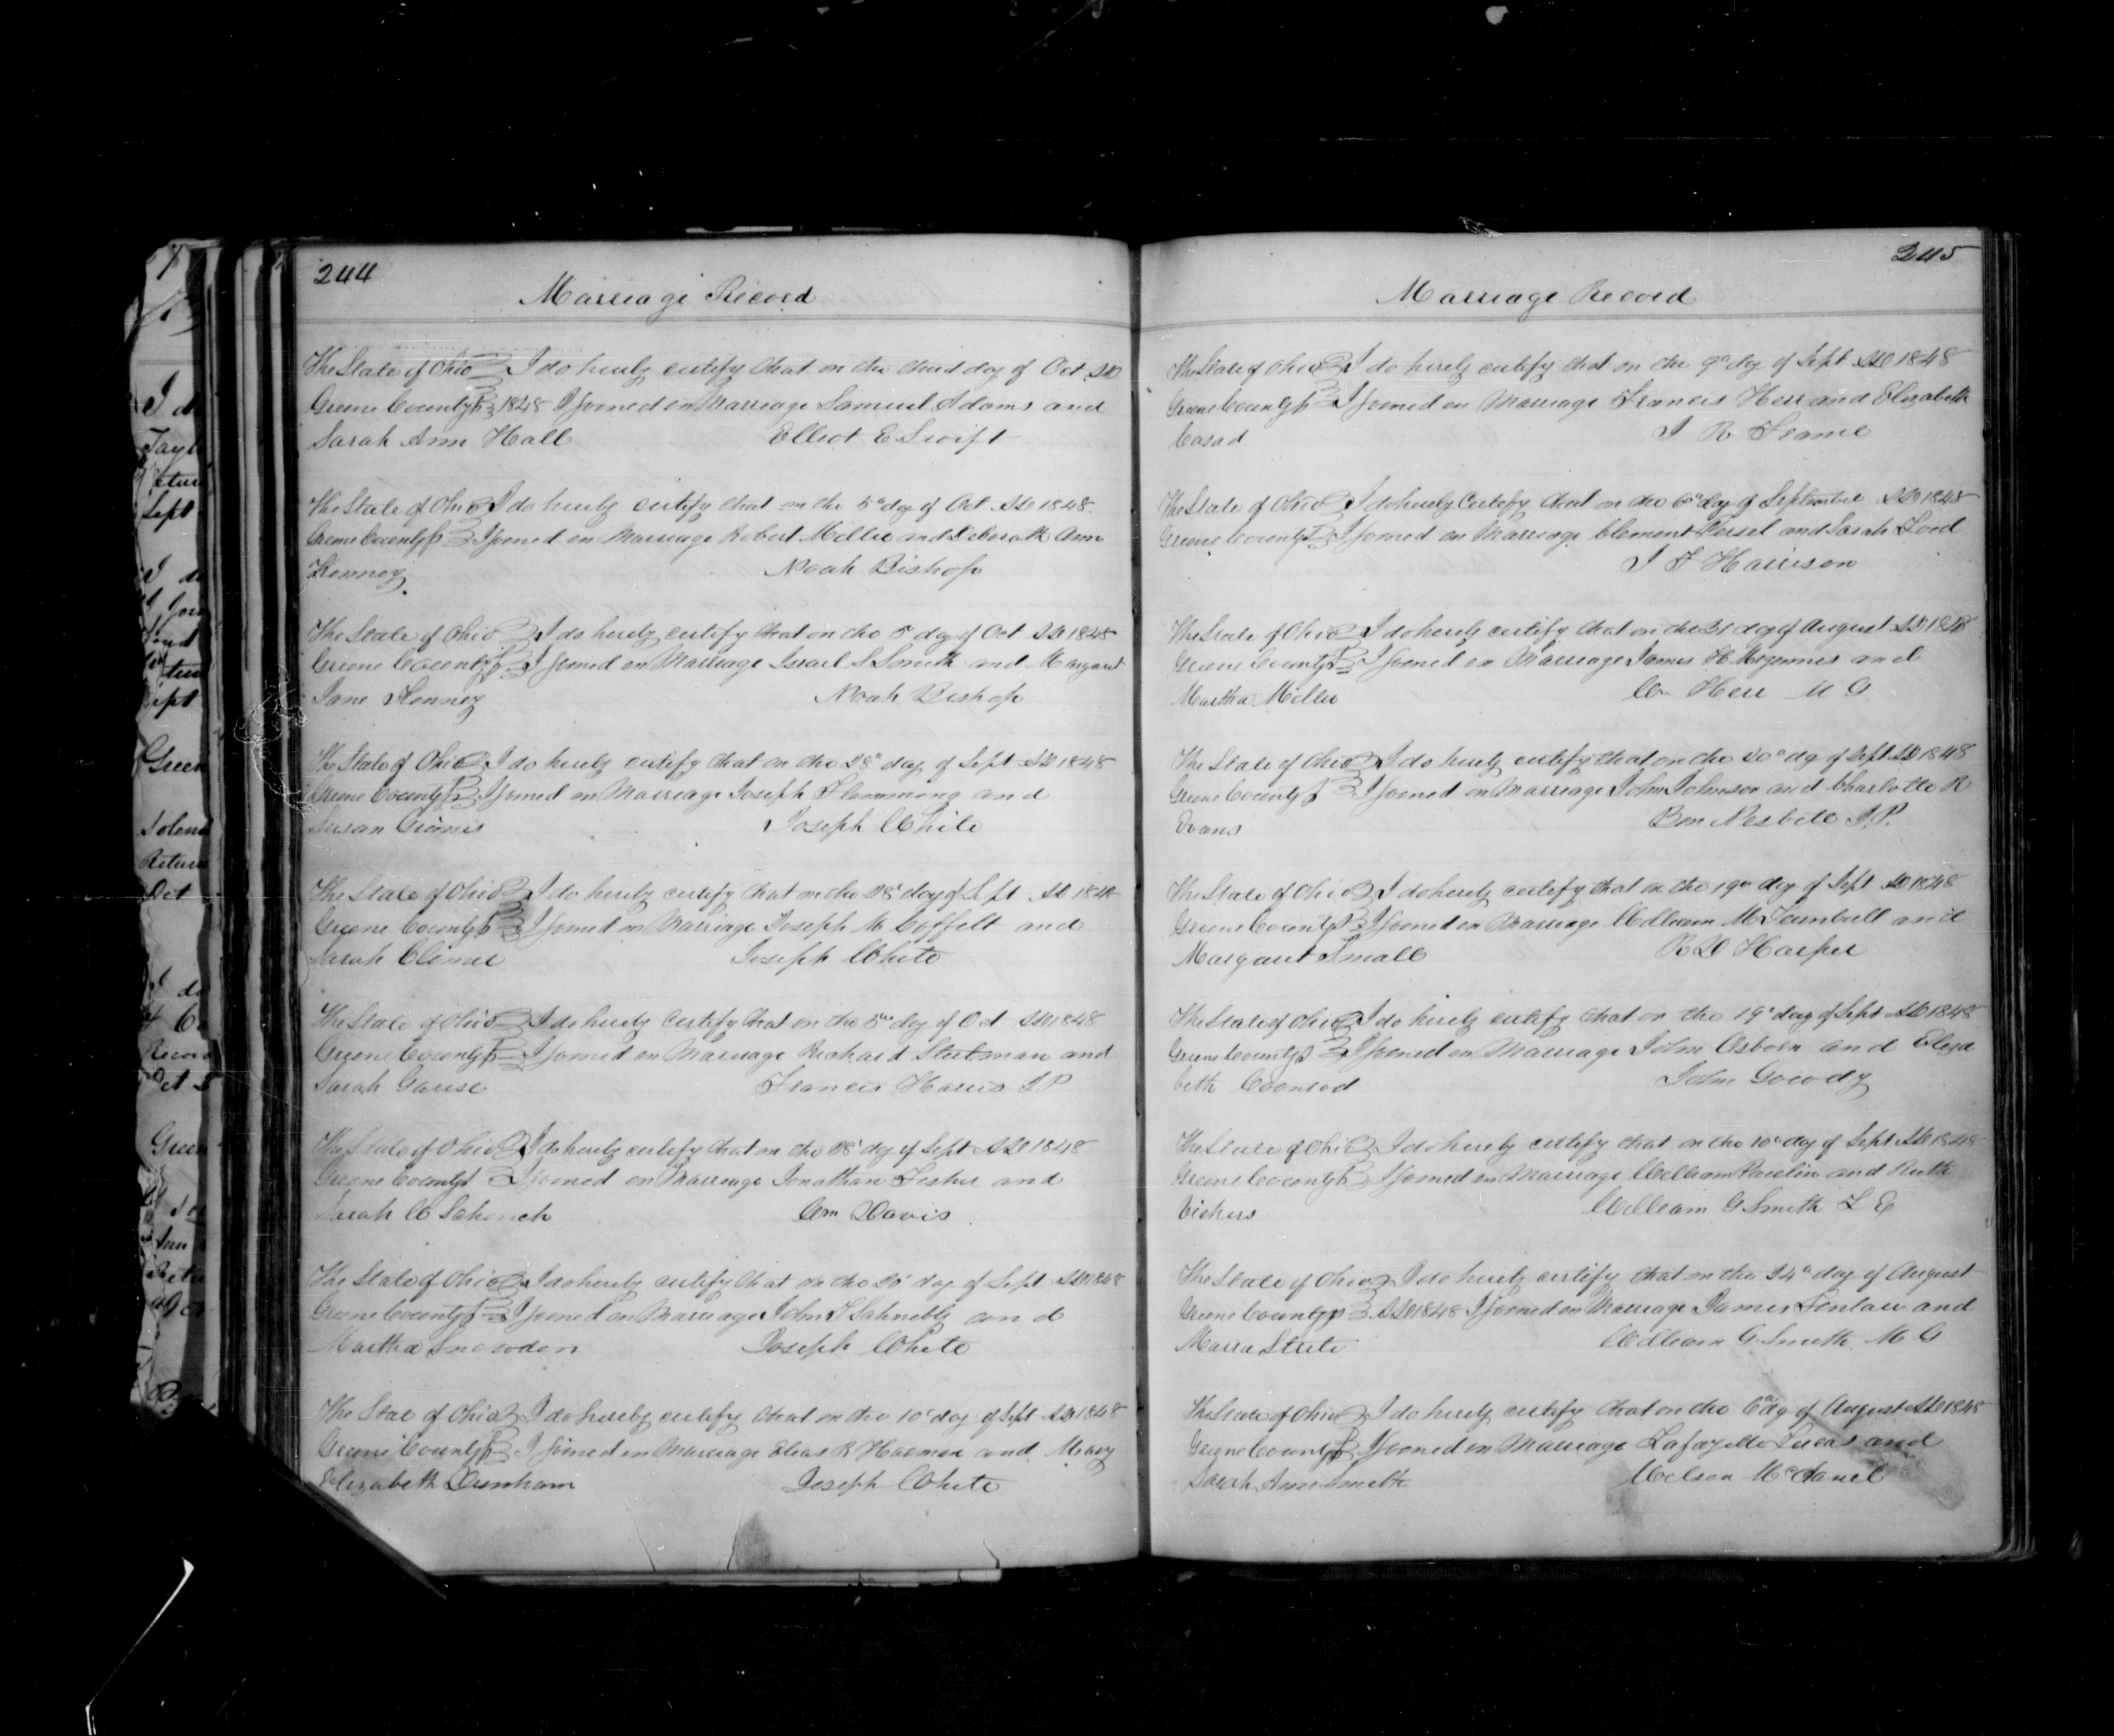 244
Marriage Record
The State of Ohio I do hereby certify that on the third day of Oct AD
Greene County ss 1848 I joined in Marriage Samuel Adams and
Sarah Ann Hall Elliot E Swift
The State of Ohio I do hereby certify that on the 5th day of Oct AD 1848.
Greene County ss I joined in Marriage Robert Miller and Deborah Ann
Kenney Noah Bishop
The State of Ohio I do hereby certify that on the 5 day of Oct AD 1848
Greene County ss I joined in Marriage Israel S Smith and Margaret
Jane Kenney Noah Bishop
The State of Ohio I do hereby certify that on the 28th day of Sept AD 1848
Greene County ss I joined in Marriage Joseph Flemming and
Susan Joseph White
The State of Ohio I do hereby certify that on the 28 day of Sept AD 1848
Greene County ss I joined in Marriage Joseph M Coffelt and
Sarah Climer Joseph White
The State of Ohio I do hereby certify that on the 5th day of Oct AD 1848
Greene County ss I joined in Marriage Richard Stutsman and
Sarah Gause Francis Harris J P
The State of Ohio I do hereby certify that on the 28 day of Sept AD 1848
Greene County ss I joined in Marriage Jonathan Fisher and
Sarah C Schenck Wm Davis
The State of Ohio I do hereby certify that on the day of Sept AD 1848
Greene County ss I joined in Marriage John S Schnebly and
Martha Snowden Joseph White
The Stae of Ohio I do hereby certify that on the 10 day of Sept AD 1848
Greene County ss I joined in Marriage Elias R Harman and Mary
Elizabeth Dunham Joseph White
245
Marriage Record
The State of Ohio I do hereby certify that on the 9th day of Sept AD 1848
Greene County ss I joined in Marriage Francis Herr and Elizabeth
Casad J R Frame
The State of Ohio I do hereby Certify that on the 6th day of September AD 1848
Greene County ss I joined in Marriage Clement and Sarah Lord
J F Harrison
The State of Ohio I do hereby certify that on the 31 day of August AD 1848
Greene County ss I joined in Marriage James H Megennes and
Martha Miller Herr M G
The State of Ohio I do hereby certify that on the 20th day of Sept AD 1848
Greene County ss I joined in Marriage John Johnson and Charlotte R
Evans Ben Nesbitt J.P.
The State of Ohio I do hereby certify that on the 19th day of Sept AD 1848
Greene County ss I joined in Marriage William M Turnbull and
Margaret Small R D Harper
The State of Ohio I do hereby certify that on the 19th day of Sept AD 1848
Greene County ss I joined in Marriage John Osborn and Eliza
beth Coonrod John Gowdy
The State of Ohio I do hereby certify that on the 10th day of Sept AD 1848
Greene County ss I joined in Marriage William Paulin and Ruth
Vickers William G Smith L E
The State of Ohio I do hereby certify that on the 24th day of August
Greene County ss AD 1848 I joined in Marriage James Finlaw and
Maria Strete William G Smith M G
The State of Ohio I do hereby certify that on the 6th day of August AD 1848
Greene County ss I joined in Marriage Lafayette Lucas and
Sarah Ann Smith Wilson McDanel